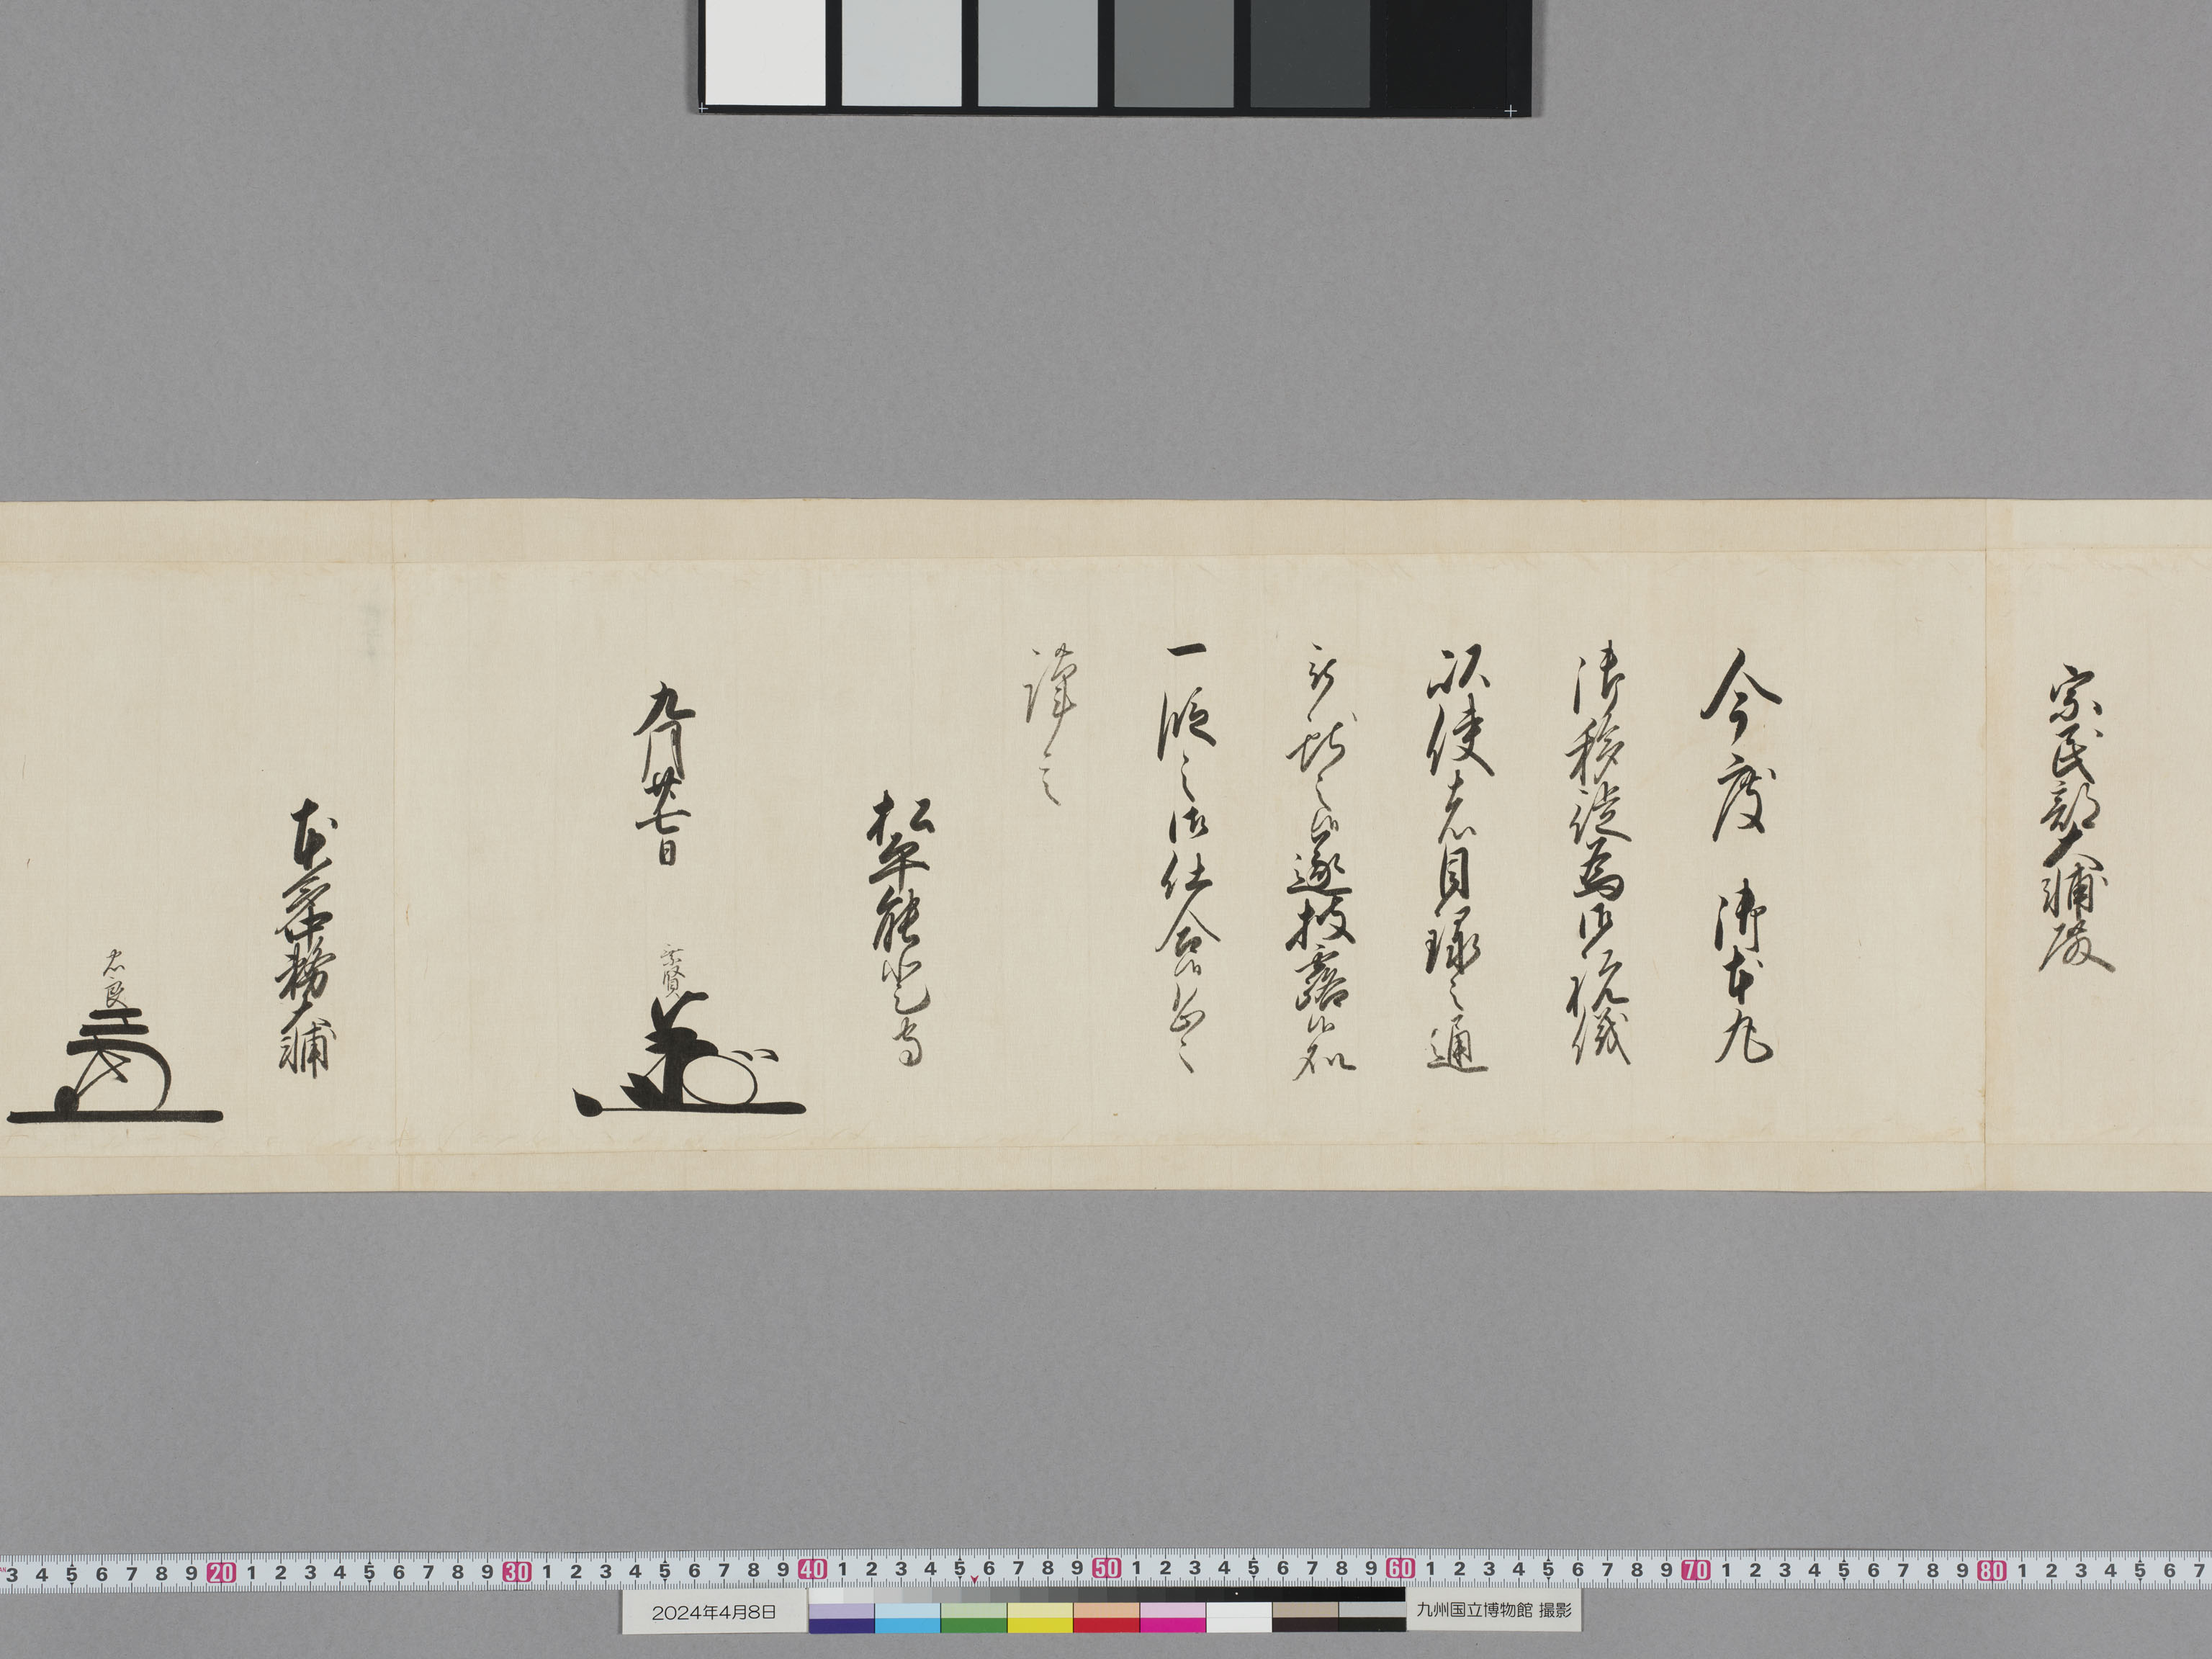 宗民部大輔殿
今度 御本丸
御移徙為御祝儀
以使者目録之通
献之候遂披露候処
一段之御仕合候恐々
謹言
松平能登守
九月廿七日
乗賢
本多中務大輔
忠良
3 4 5 6 7 8 9 20 1 2 3 4 5 6 7 8 9 30 1 2 3 4 5 6 7 8 9 40 1 2 3 4 5 6 7 8 9 50 1 2 3 4 5 6 7 8 9 60 1 2 3 4 5 6 7 8 9 70 1 2 3 4 5 6 7 8 9 80 1 2 3 4 5 6 7
2024年4月8日
九州国立博物館 撮影